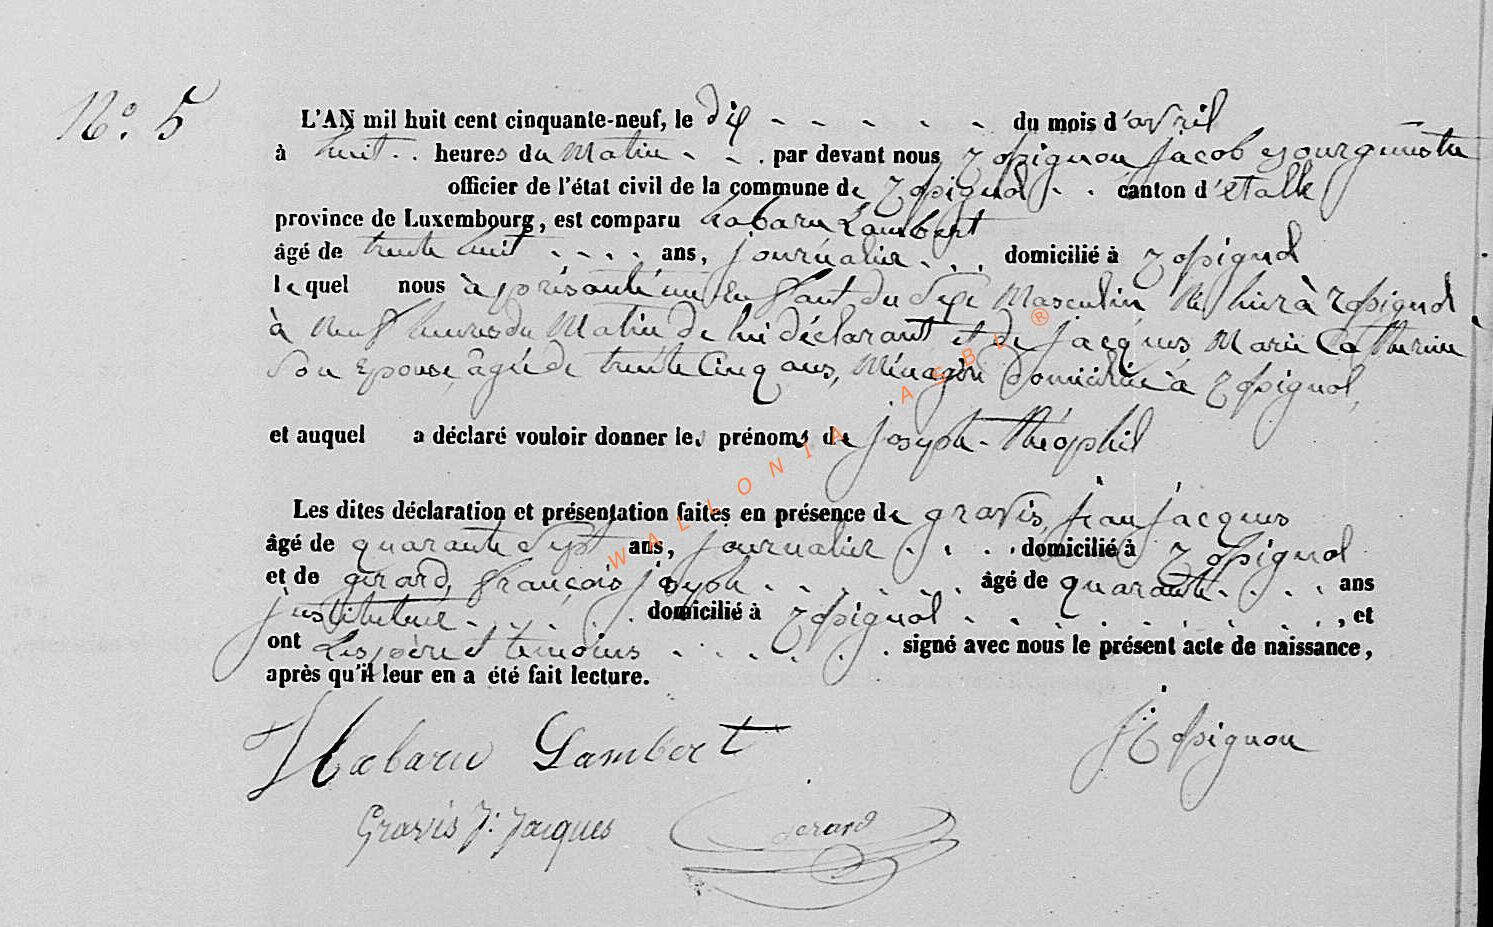 N° 5
L'AN mil huit cent cinquante-neuf, le dix - - - - - du mois d'avril
à huit . . heures du Matin - - . par devant nous Rossignon Jacob Bourgmestre
officier de l'état civil de la commune de Rossignol - . canton d'Etalle
province de Luxembourg, est comparu habaru Lambert
âgé de trente huit - - - - ans, journalier - . . domicilié à Rossignol
lequel nous à présenté un enfant du Sexe Masculin Né hier à Rossignol
à Neuf heures du Matin de lui déclarant et de Jacques, Marie Catherine
Son Epouse, âgée de trente Cinq ans, Ménagère domiciliée à Rossignol,
et auquel a déclaré vouloir donner les prénoms de Joseph-Théophil
Les dites déclaration et présentation faites en présence de gravis, jean jacques
âgé de quarante Sept ans, journalier . . . . domicilié à Rossignol
et de gérard, françois joseph . . . . . . . âgé de quarante . . . . ans
instituteur . . . . . . domicilié à Rossignol . . . . . . . . . . , et
ont Les père et temoins . . . . . . . signé avec nous le présent acte de naissance,
après qu'il leur en a été fait lecture.
Habaru Lambert
J Rossignon
Gravis J. Jacques
Gerard
WALLONIA ASBL ®